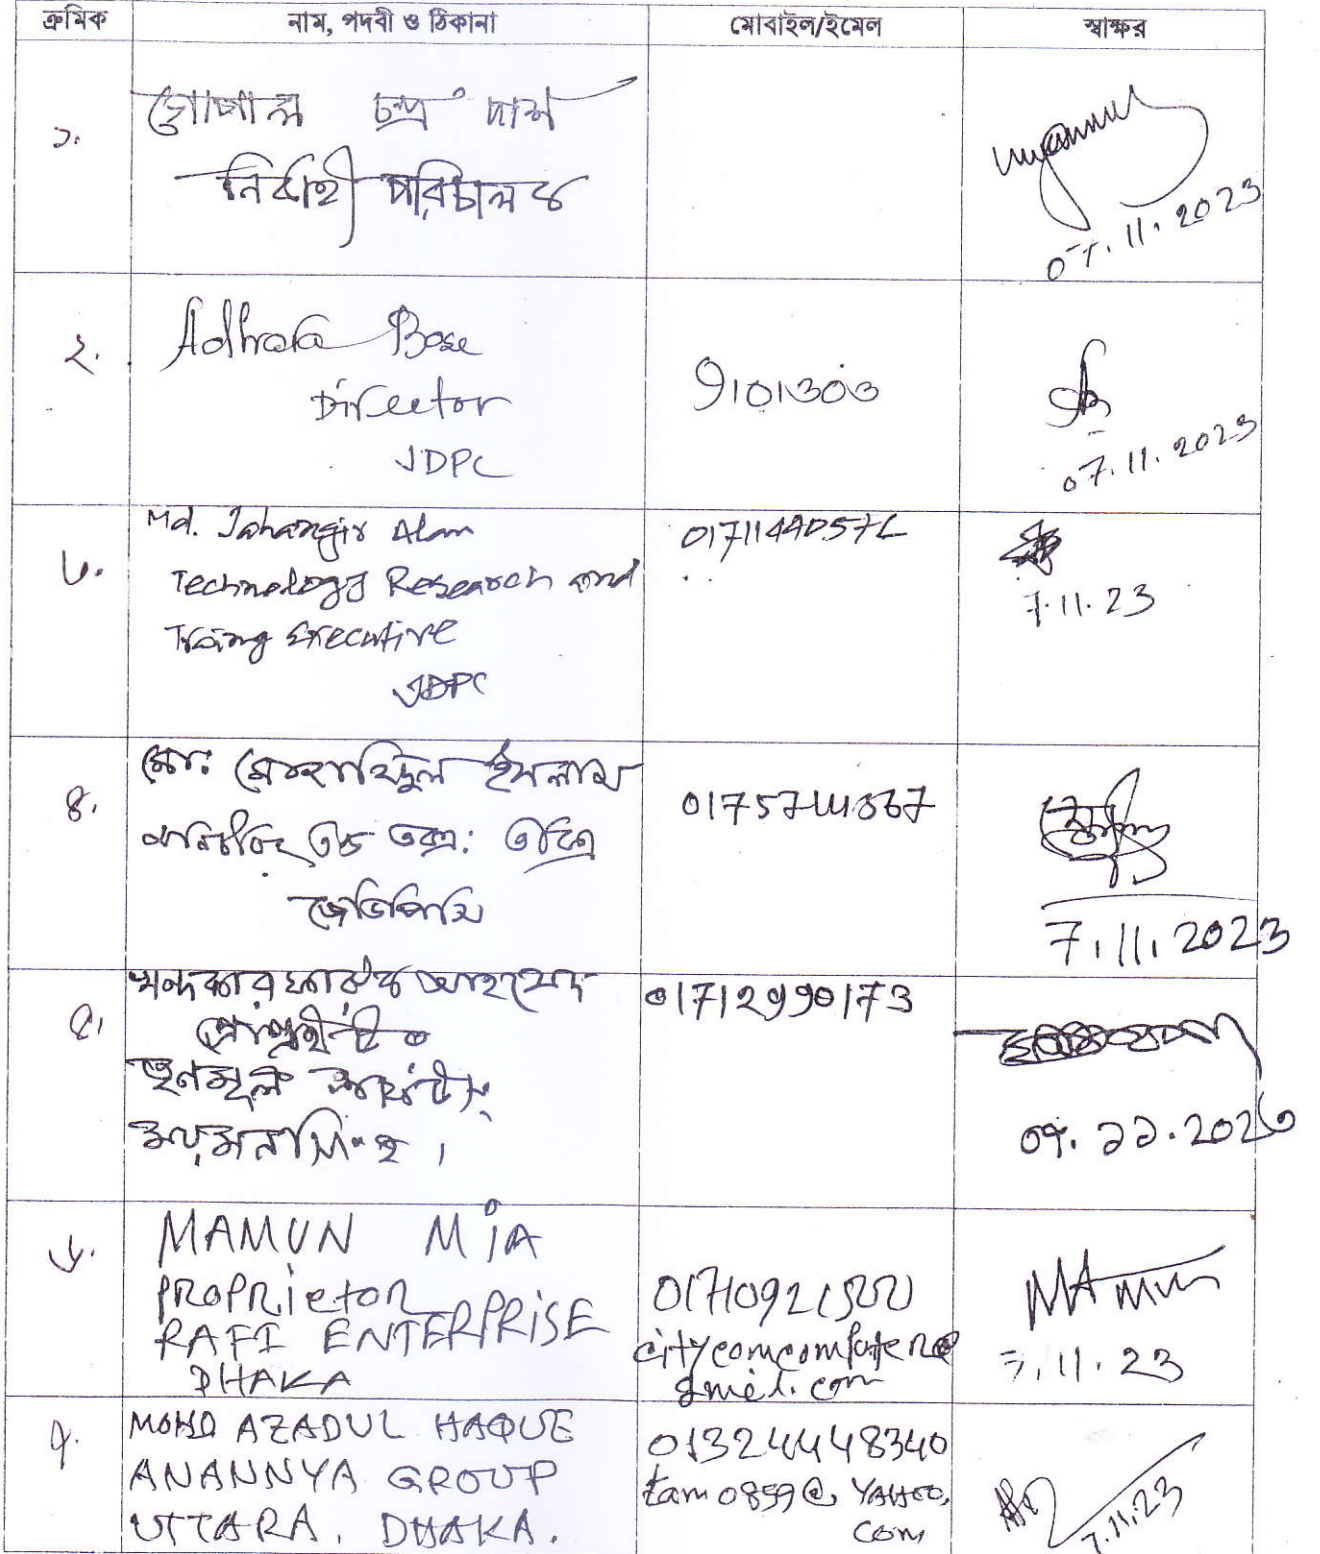 ক্রমিক নাম, পদবী ও ঠিকানা মোবাইল/ইমেল স্বাক্ষর
১.
গোপাল চন্দ্র দাশ
নির্বাহী পরিচালক
07.11.2023
২.
Bose
Director
JDPC
9101303
07.11.2023
৩.
Md. Jahangir Alam
Technology Research and
Executive
JDPC
7.11.23
৪.
মো: ইসলাম
জেডিপিসি
7.11.2023
৫.
খন্দকার ফারুক আহমেদ
ময়মনসিংহ।
01712990173
০৭.১১.২০২৩
৬.
MAMUN MiA
PROPRietor
RAFI ENTERPRiSE
DHAKA
citycomcomputer@
gmail.com
MAmun
7.11.23
৭.
MOHD AZADUL HAQUE
ANANNYA GROUP
UTTARA, DHAKA.
01324448340
tam0859@YAHOO.
com
7.11.23